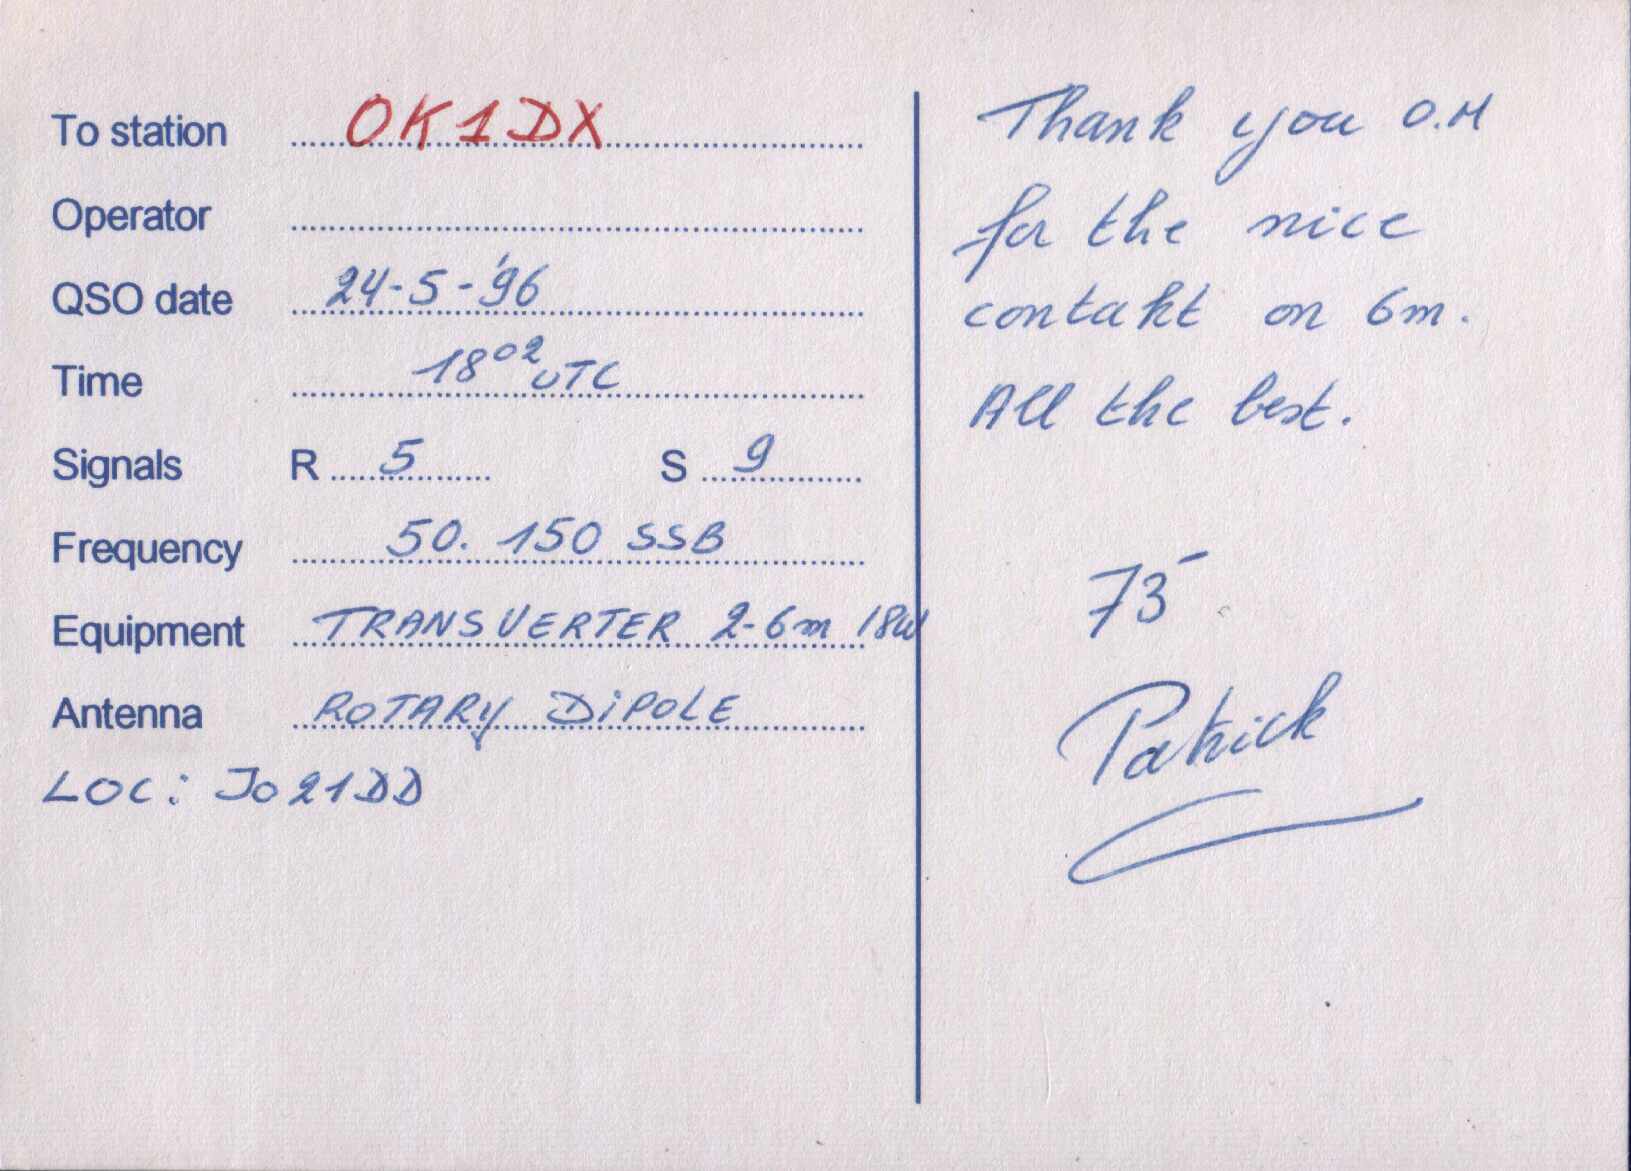 To station OK1DX
Operator
QSO date 24-5-'96
Time 18⁰² UTC
Signals R 5 S 9
Frequency 50.150 SSB
Equipment TRANSVERTER 2-6m 18W
Antenna ROTARY DiPOLE
LOC: Jo21DD
Thank you O.M
for the nice
contakt on 6m.
All the best.
73
Patrick